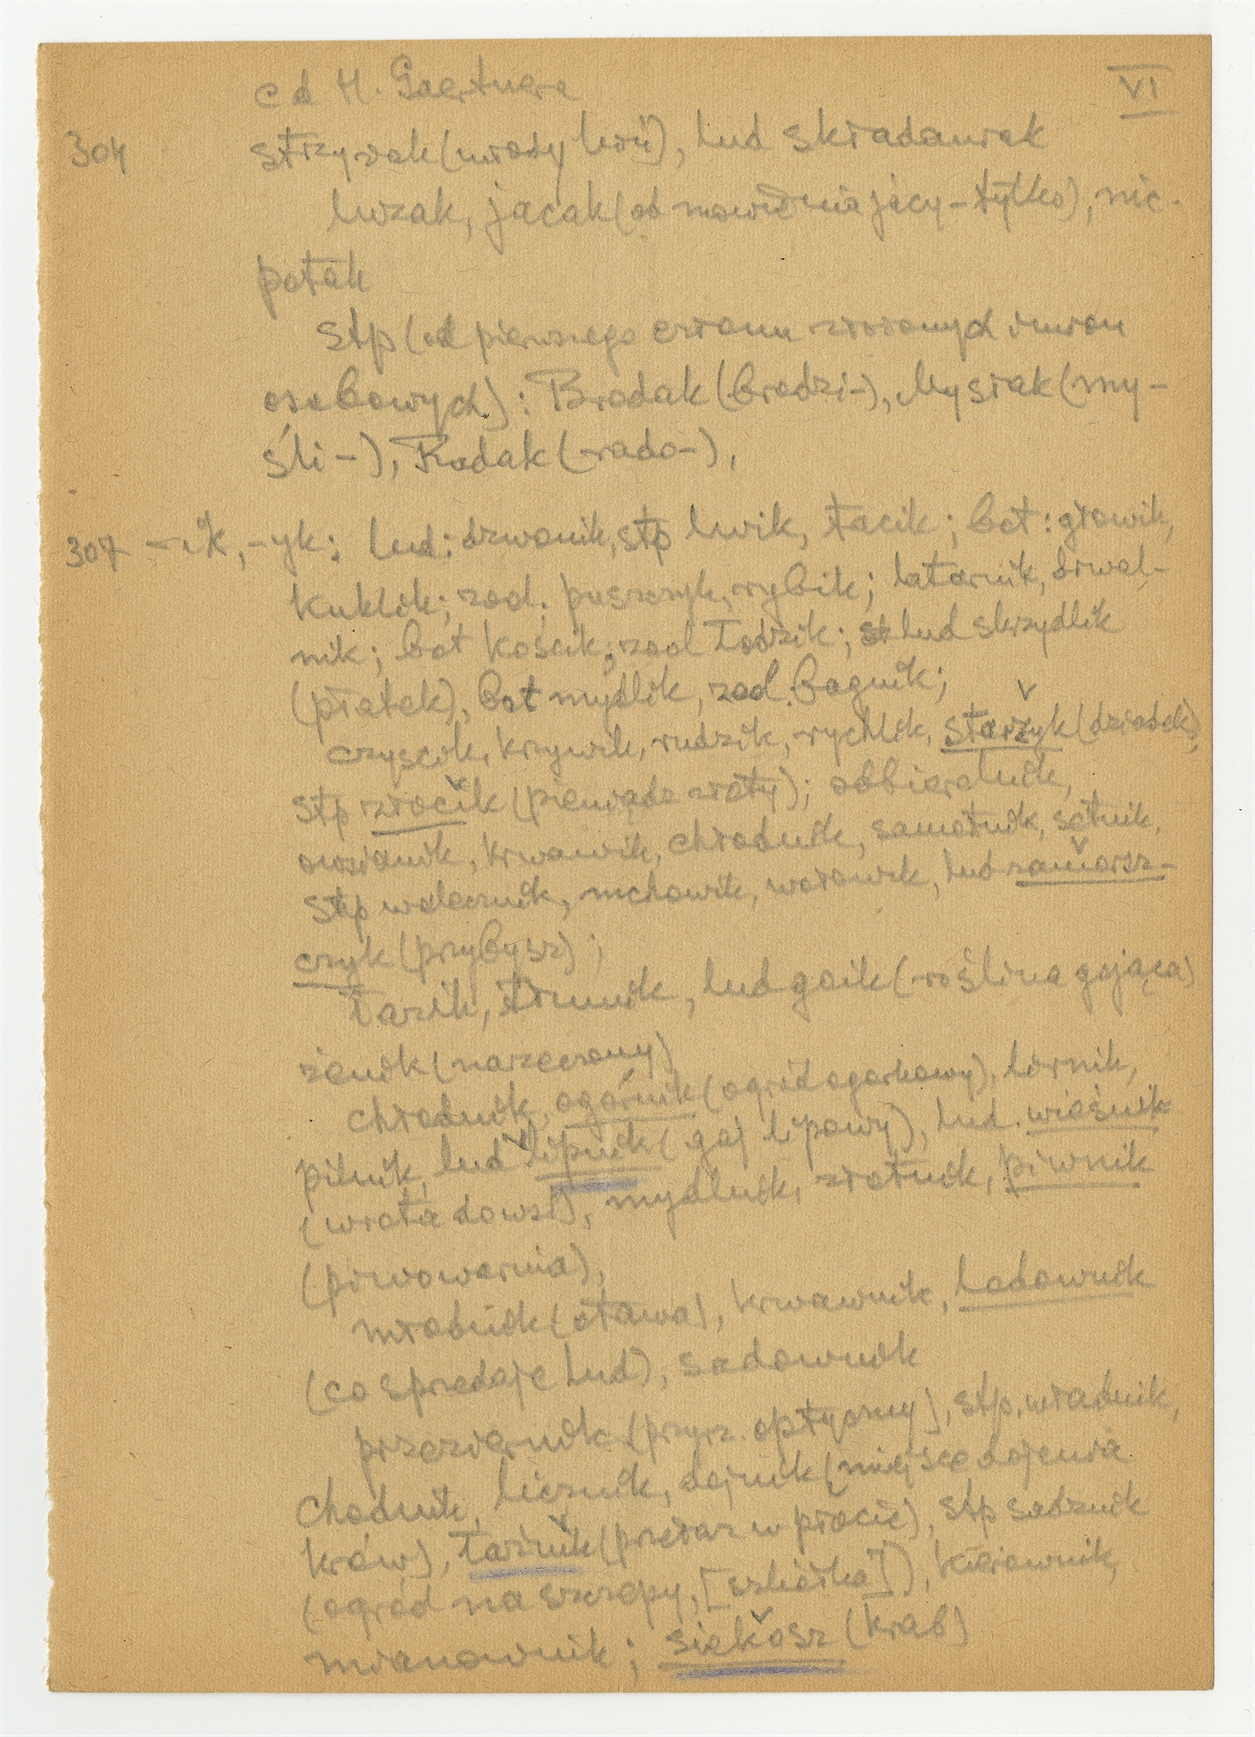 cd H. Gaertnera VI
304 strzyżak (młody koń), lud składaniak
luzak, jacak (od mówienia jacy – tylko), nic-
potak
stp (od pierwszego członu złożonych imion
osobowych): Brodak (brodzi-), Myślak (my-
śli-), Radak (-rado-),
307 -ik, -yk: lud: dzwonik, stp lwik, łacik; bot: głowik,
kuklik; zool. puszczyk, rybik; latarnik, drwal-
nik; bot kościk; zool łodzik; lud skrzydlik
(płatek), bot mydlik, zool. bagnik;
czyścik, krzywik, rudzik, rychlik, starzyk (dziadek)
stp złocik (pieniądz złoty); odbieralnik,
owsianik, krwawik, chłodnik, samotnik, setnik,
stp walecznik, mchowik, lud zamorsz-
czyk (przybysz);
łazik, lud goik (roślina gojąca)
żenik (narzeczony)
chłodnik, ogórnik (ogród ogórkowy), lirnik,
pilnik, lud lipnik (gaj lipowy), lud. wieśnik
(wrota do wsi), mydlnik, złotnik, piwnik
(piwowarnia),
młodnik (otawa), krwawnik, lodownik
(co sprzedaje lud), sadownik
przeziernik (przyrz. optyczny), stp. władnik,
chodnik, licznik, dojnik (miejsce dojenia
krów), łaźnik (przełaz w płocie), stp sadznik
(ogród na szczepy, [szkółka]), kierownik,
mianownik; siekosz (krab)